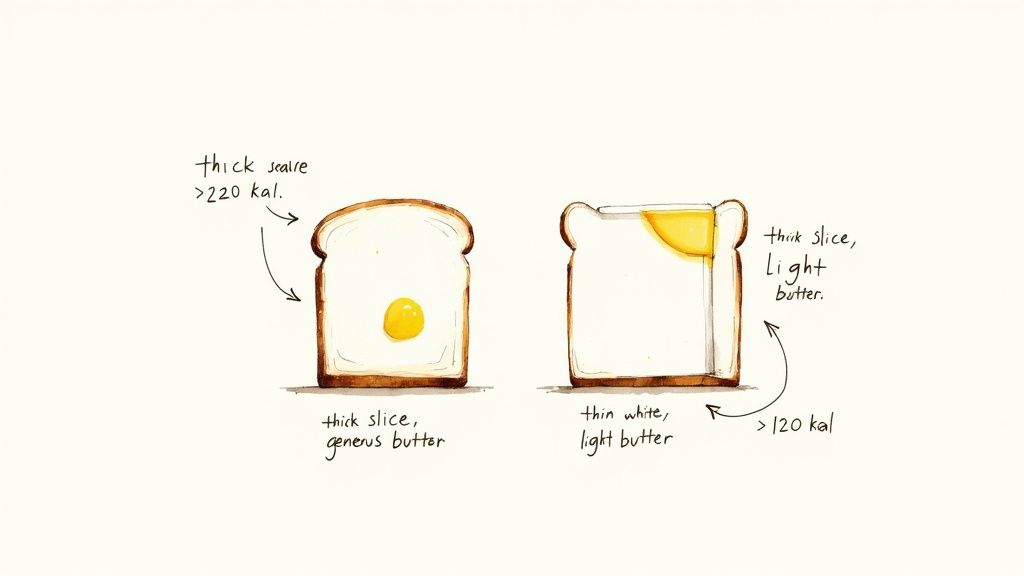 thick sealre
>220 kal.
thick slice,
generus butter
thin white,
light butter
thiik slice,
Light
butter.
>120 kal